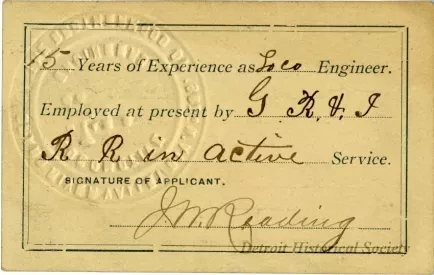 15 Years of Experience as Loco Engineer.
Employed at present by G R. & I
R. R in active Service.
SIGNATURE OF APPLICANT.
J. W. Reading
Detroit Historical Society